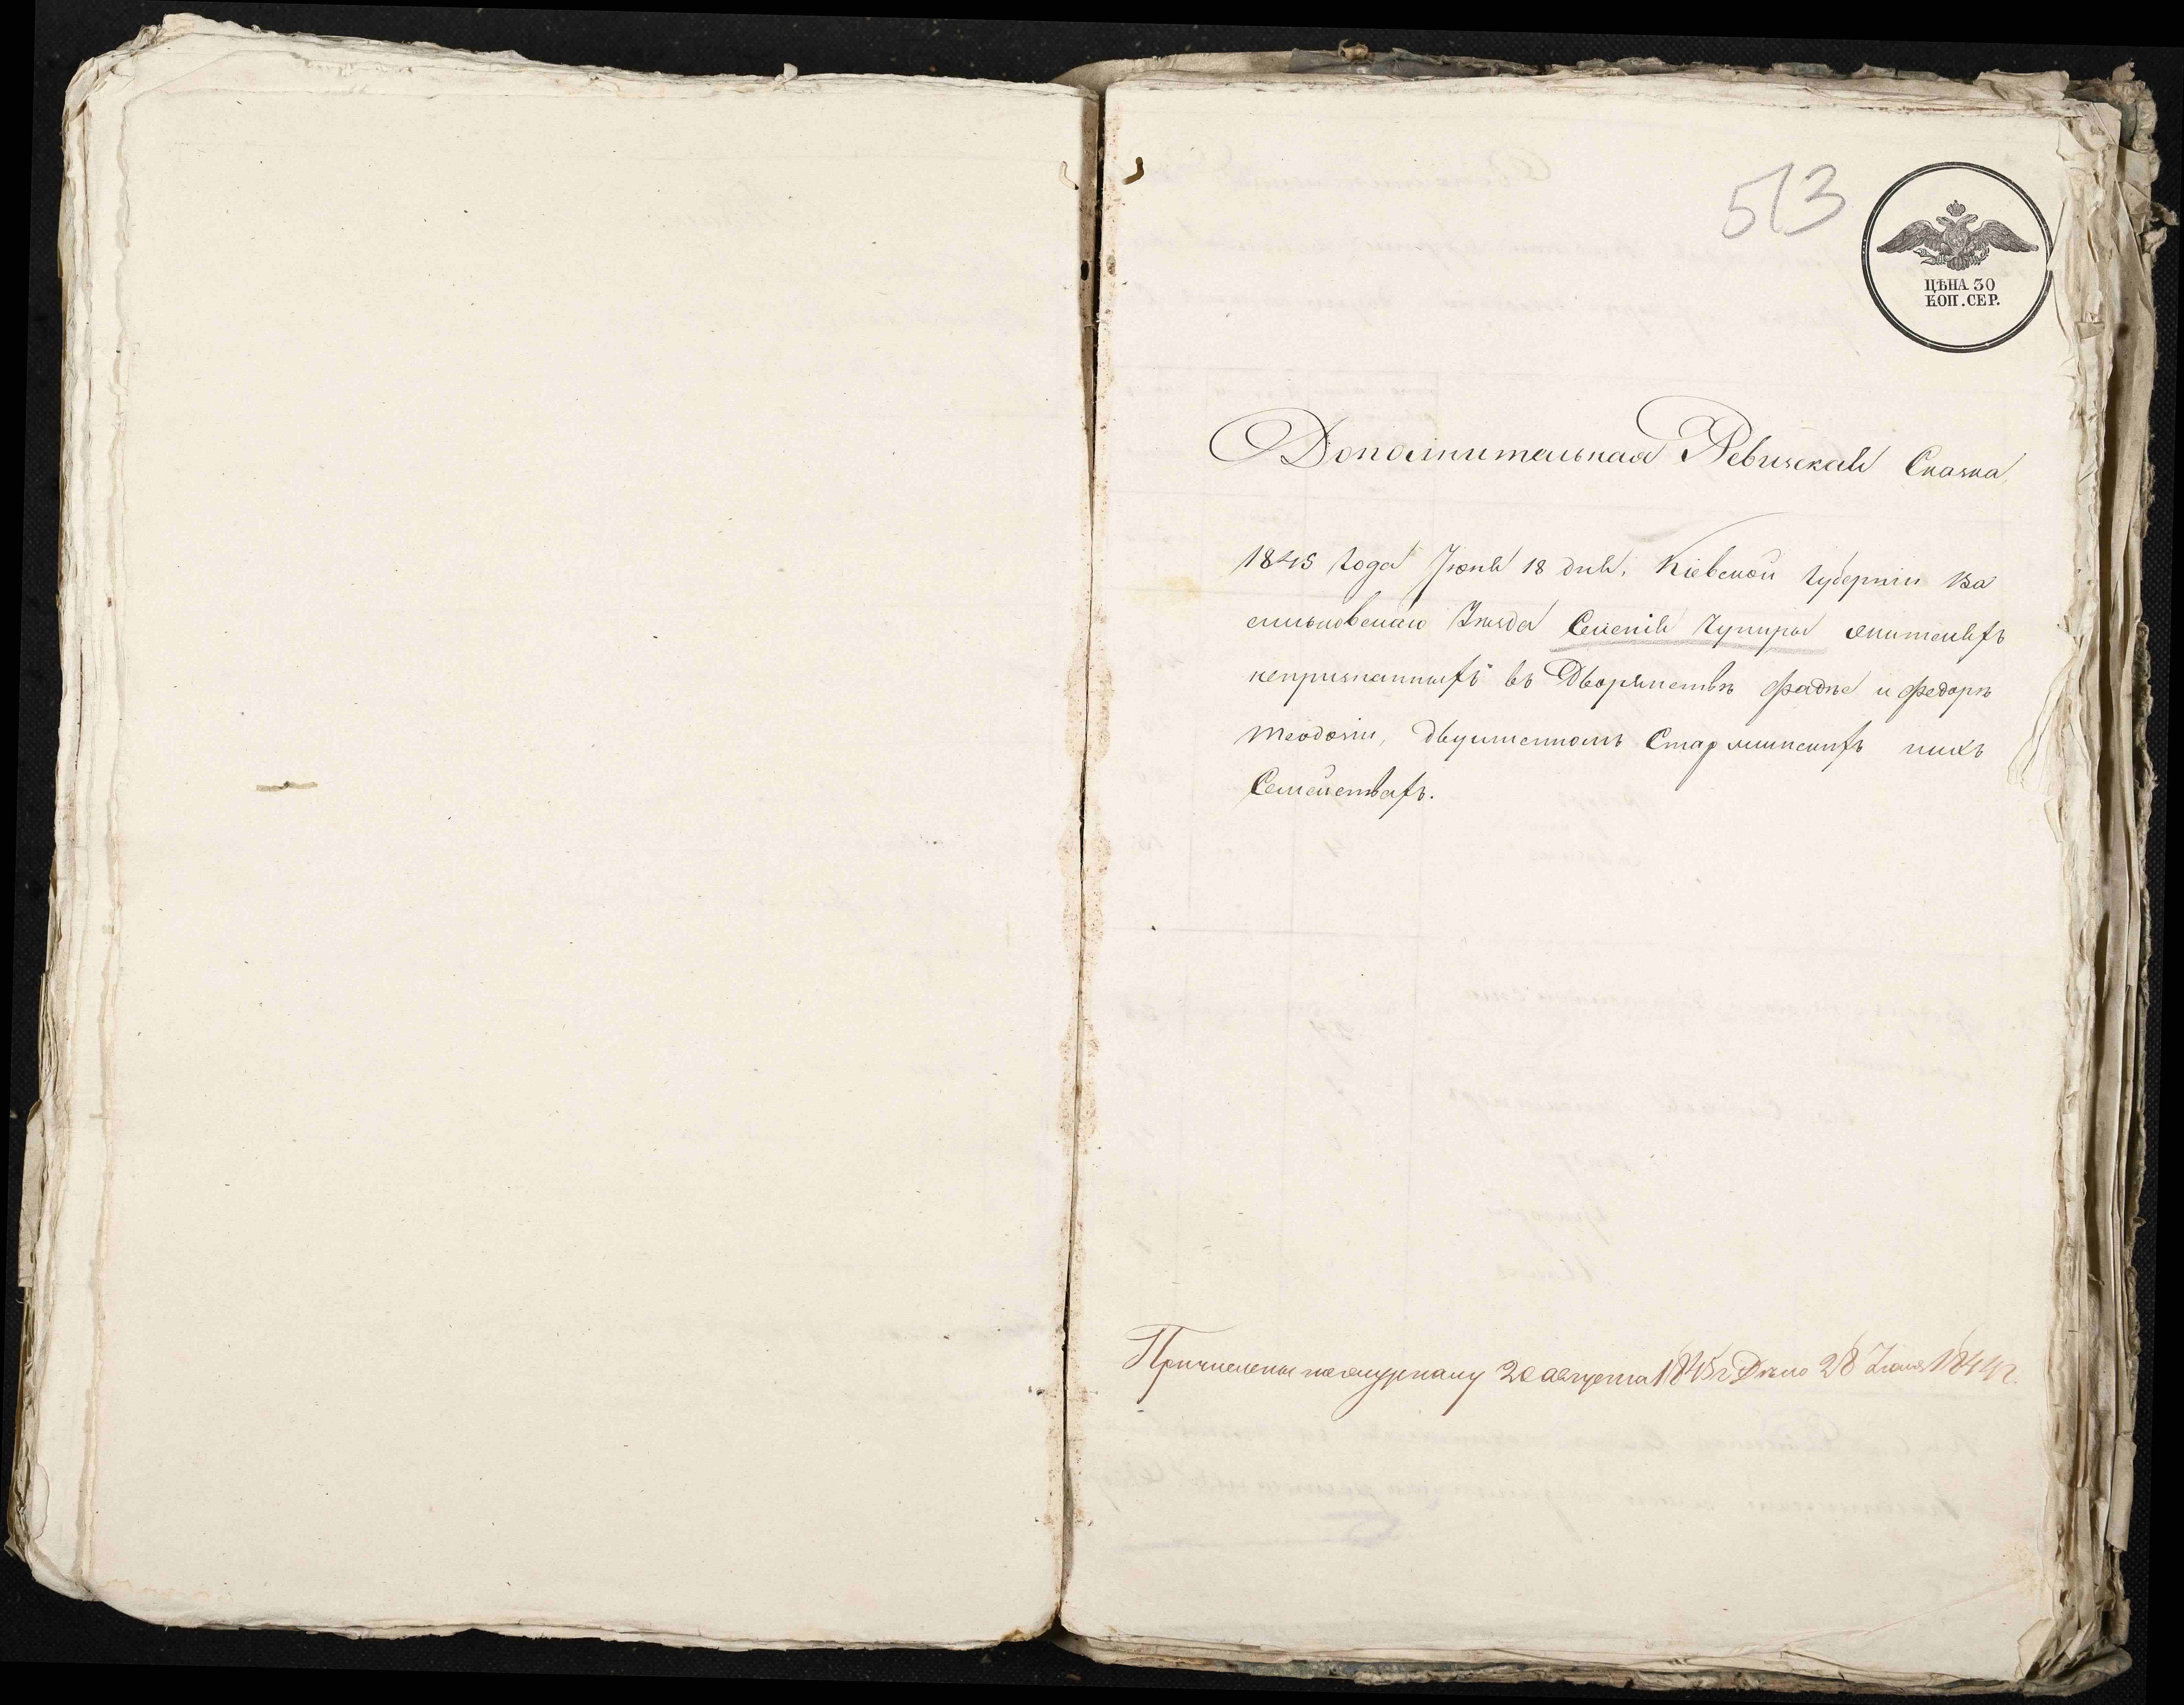 513
ЦѢНА 30
КОП. СЕР.
Дополнительная Ревизская Сказка
1845 года Іюня 18 дня, Кіевской губерніи Ва
сильковскаго Уезда Селенія Чупиры жителяхъ
непризнанныхъ въ Дворянствѣ Фадѣе и Федорѣ
Теодозіи, двуименномъ Стар и ихъ
Семействахъ.
Причислены по журналу 20 августа 1845 г Дѣло 28 Іюля 1844 г.